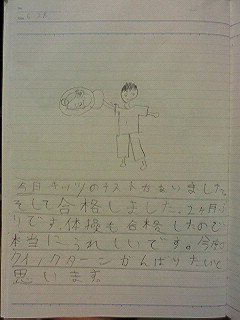 今日キッツのテストがありました。
そして合格しました。2ヶ月
りです。体操も合格したので
本当にうれしいです。今度
クイックターンがんばりたいと
思います。